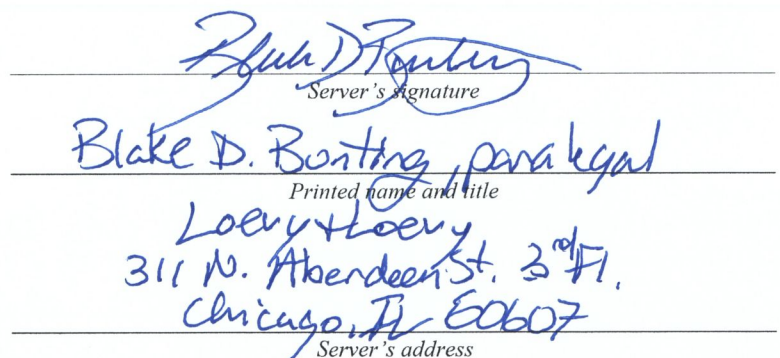 Blake D Bunting
Server's signature
Blake D. Bunting, paralegal
Printed name and title
Loevy + Loevy
311 N. Aberdeen St. 3rd Fl.
Chicago, IL 60607
Server's address